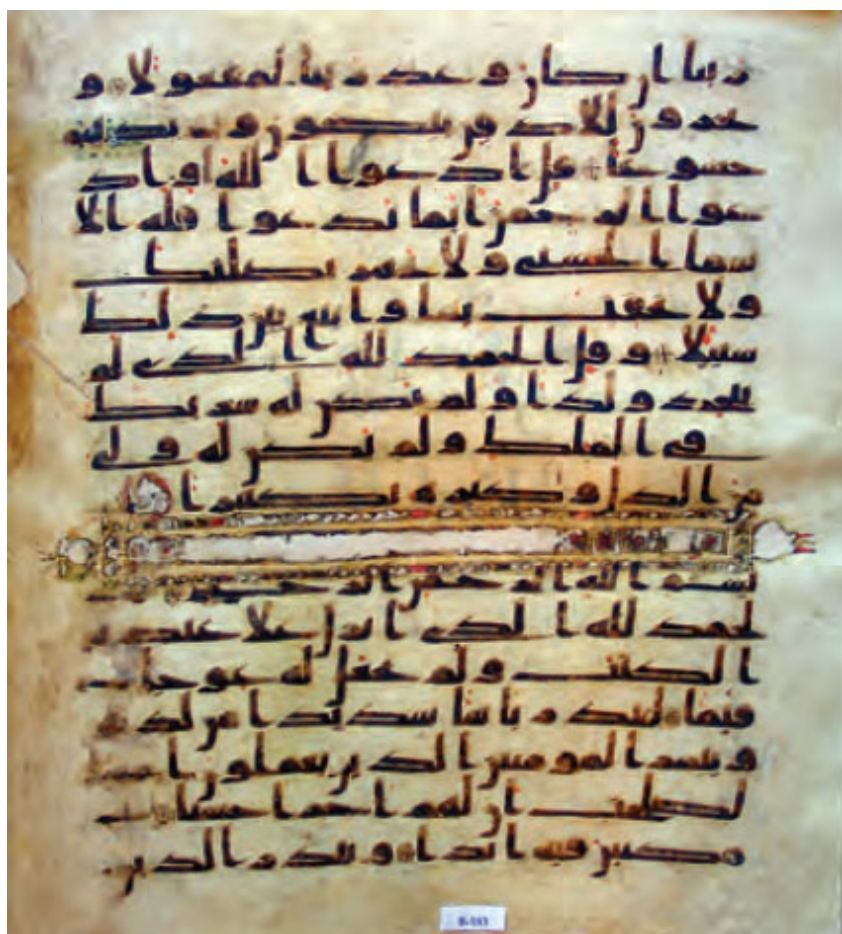 ربنا ان كان وعد ربنا لمفعولا و
يخرون للاذقن يبكون ويزيدهم
خشوعا قل ادعوا الله او اد
عوا الرحمن ايما تدعوا فله الا
سما الحسنى ولا تجهر بصلتك
ولا تخفت بها وابتغ بين ذلك
سبيلا وقل الحمد لله الذي لم
يتخذ ولدا ولم يكن له شريك
في الملك ولم يكن له ولي
من الذل وكبره تكبيرا
بسم الله الرحمن الرحيم ا
لحمد لله الذي انزل على عبده
الكتب ولم يجعل له عوجا
قيما لينذر باسا شديدا من لدنه
ويبشر المومنين الذين يعملون ا
لصلحت ان لهم اجرا حسنا
مكثين فيه ابدا وينذر الذين